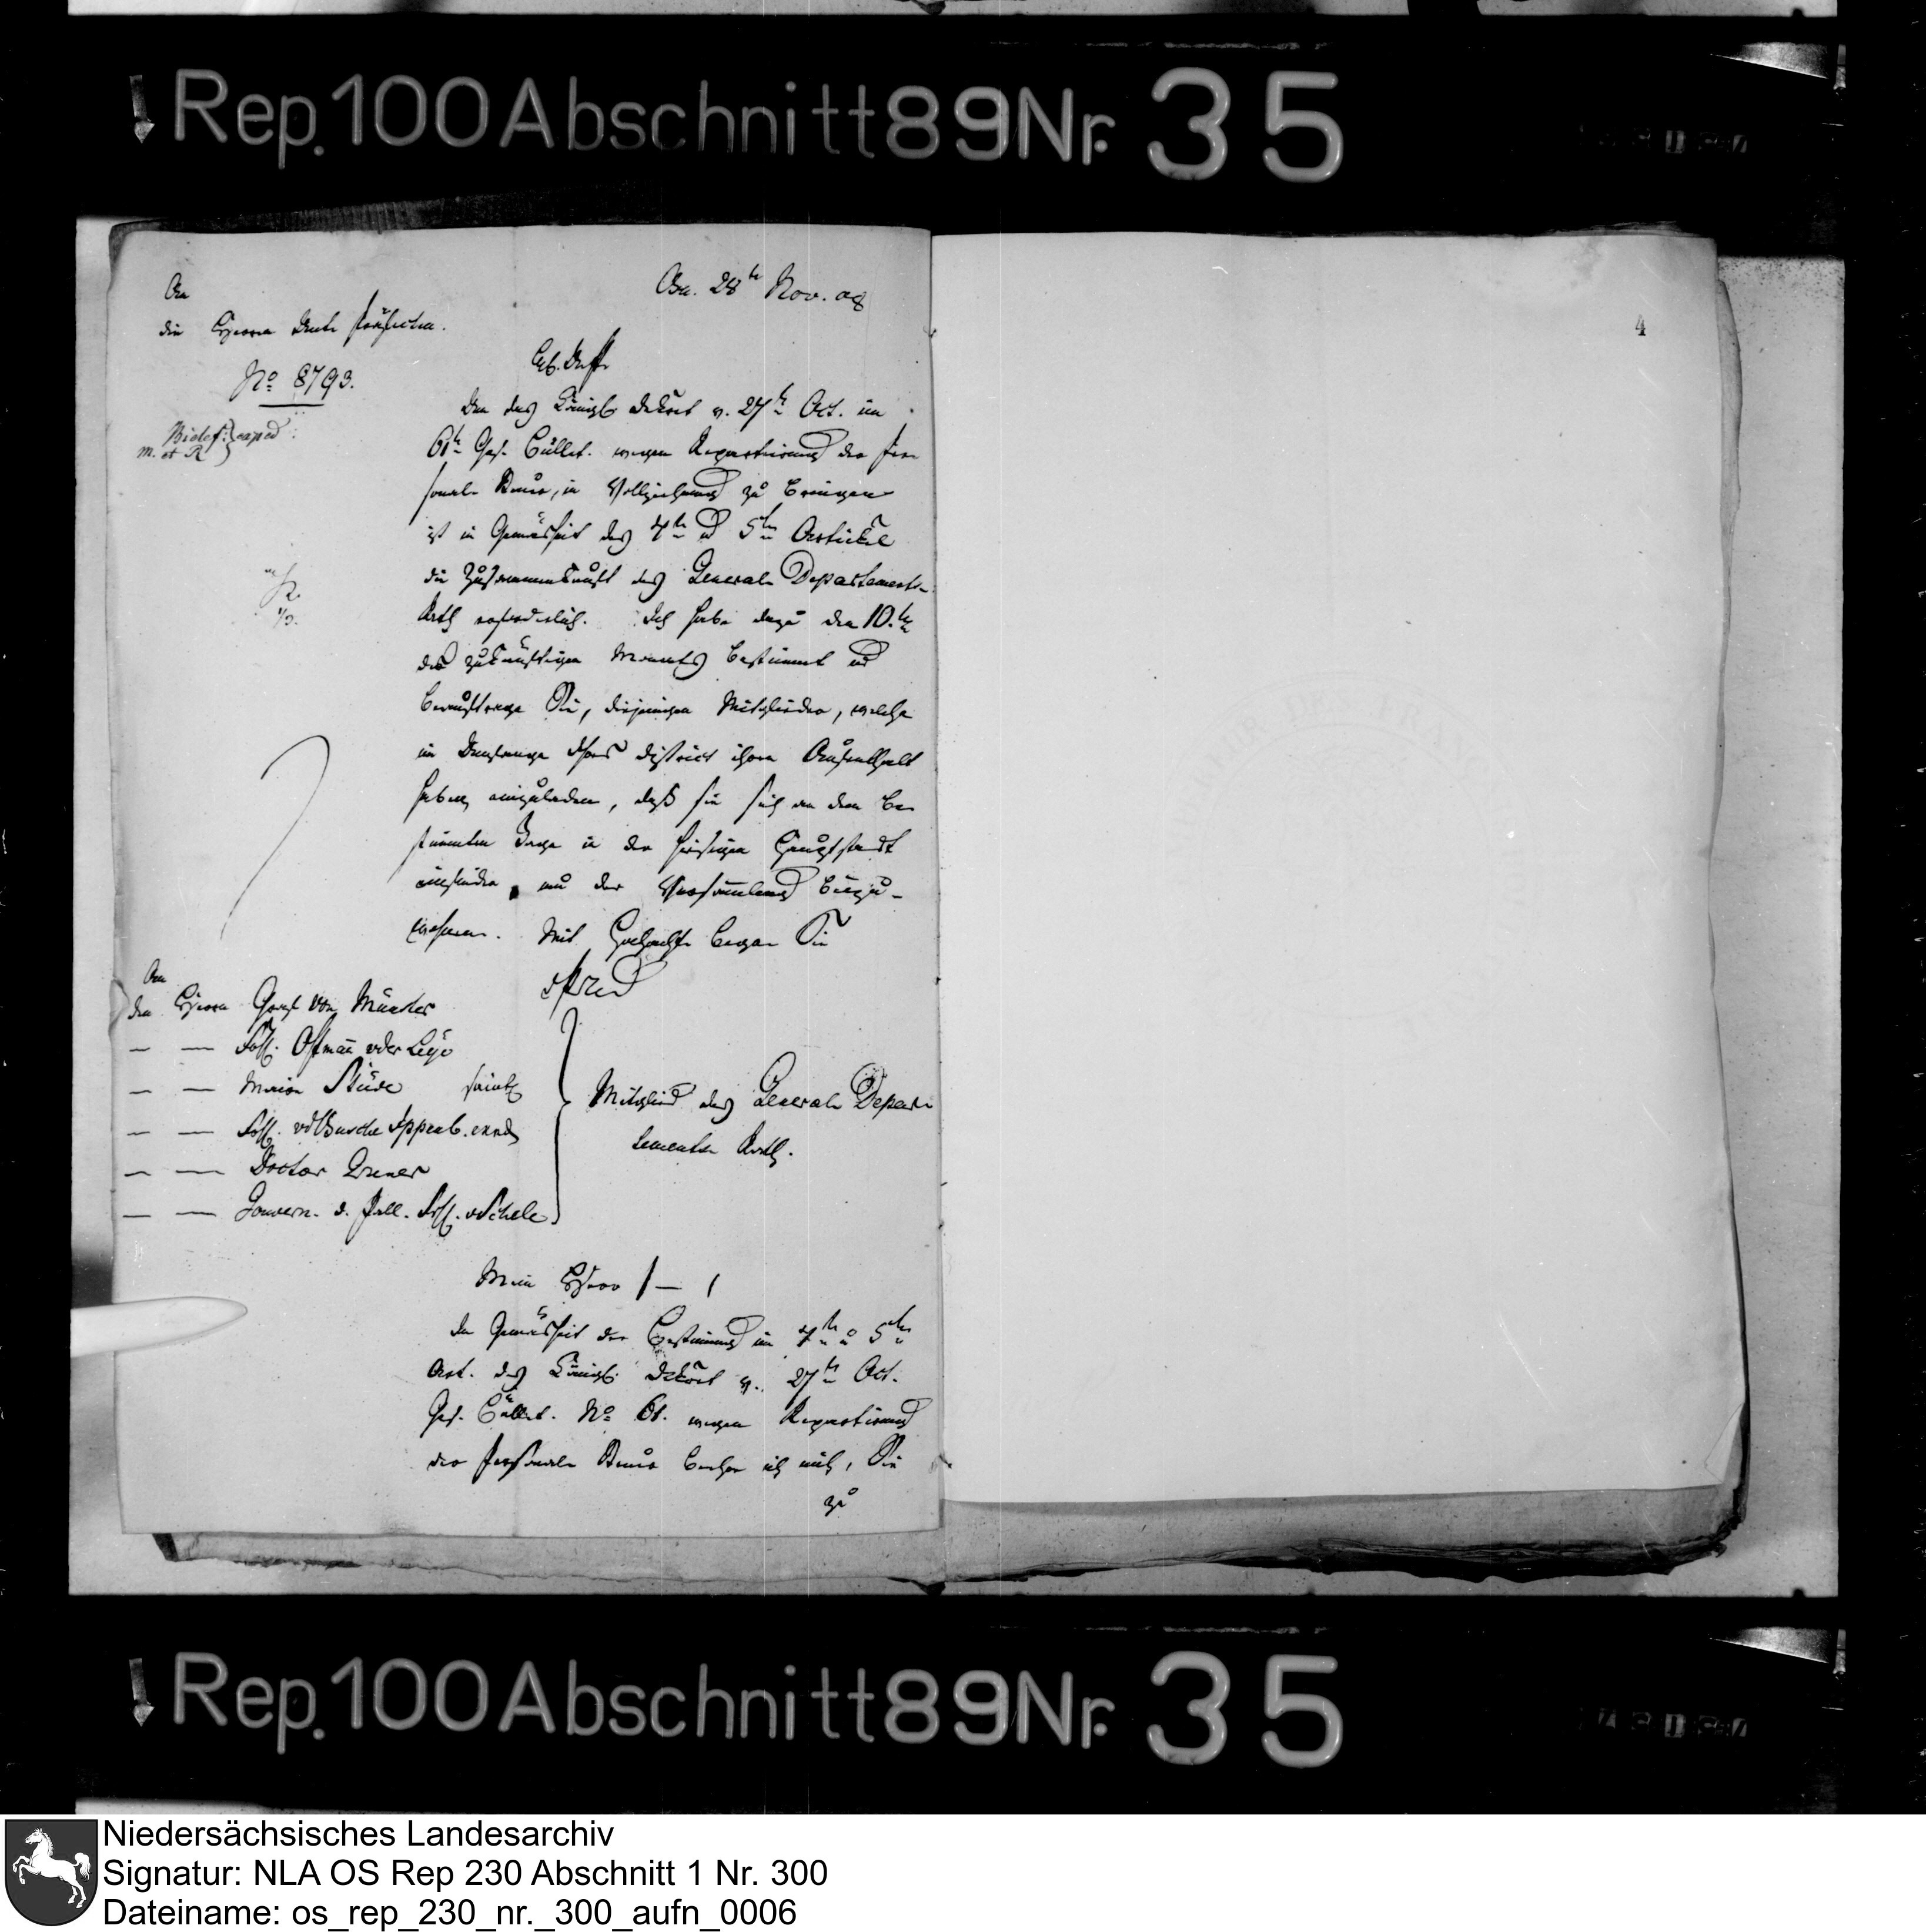 Rep. 100 Abschnitt 89 Nr. 35
An
die Herren Unter Präfecten.
No 8793.
Bielef: exped
m. et R
Osn. 28te Nov. 08
4
Um das Königl. Dekret v. 27te Oct. im
61te Ges. Büllet. wegen Repartirung der Per
sonal Steuer, in Vollziehung zu bringen
ist in Gemäsheit des 4te u 5ten Artickel
die Zusammenkunft des General Departements
Rath erforderlich. Ich habe dazu den 10.te
des zukünftigen Monats bestimmt und
beauftrage Sie, diejenigen Mitglieder, welche
im Umfange Ihres District ihren Aufenthalt
haben, einzuladen, daß sie sich an dem be
stimmten Tage in der hiesigen Hauptstadt
einfinden, um der Versammlung beizu-
wohnen. Mit Hochacht.
An
den Herrn Graf von Münster
— — Ostman vder Leye
— — Maire Stüve
— — vdBussche
— — Doctor
— — Gouvern. d. Pall. vSchele
Mitglied des General Depar
tements Rath.
Mein Herr
In Gemäsheit der Bestimmung im 4te u 5ten
Art. des Königl. Dekret v. 27te Oct.
Ges. Büllet. No 61. wegen Repartirung
der Personal Steuer beehre ich mich, Sie
zu
Rep. 100 Abschnitt 89 Nr. 35
Niedersächsisches Landesarchiv
Signatur: NLA OS Rep 230 Abschnitt 1 Nr. 300
Dateiname: os_rep_230_nr._300_aufn_0006